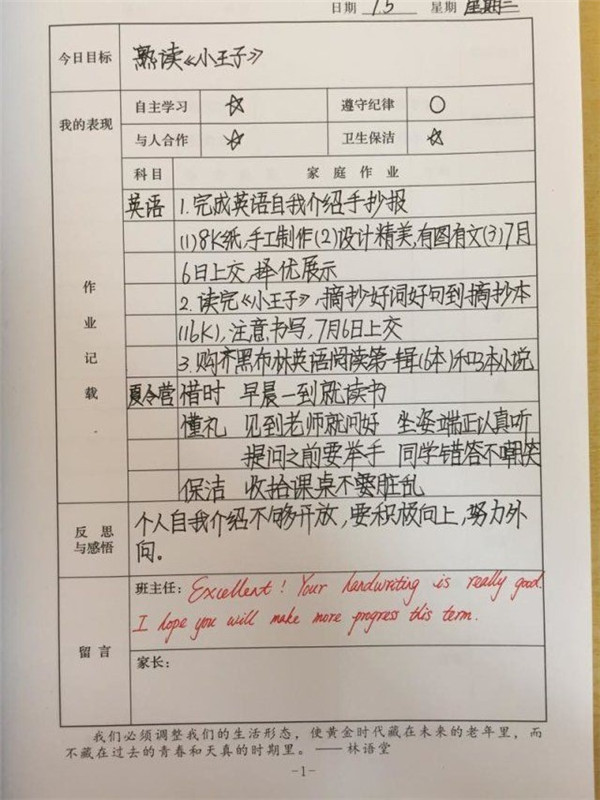 日期 7.5 星期 星期三
今日目标 熟读《小王子》
我的表现 自主学习 ☆ 遵守纪律 ○
与人合作 ☆ 卫生保洁 ☆
作业记载 科目 家庭作业
英语 1.完成英语自我介绍手抄报
(1)8K纸,手工制作(2)设计精美,有图有文(3)7月
6日上交,择优展示
2.读完《小王子》,摘抄好词好句到摘抄本
(16K),注意书写,7月6日上交
3.购齐黑布林英语阅读第一辑(6本)和四本小说
夏令营 惜时 早晨一到就读书
懂礼 见到老师就问好 坐姿端正认真听
提问之前要举手 同学错答不嘲笑
保洁 收拾课桌不要脏乱
反思与感悟 个人自我介绍不够开放,要积极向上,努力外
向。
留言 班主任: Excellent! Your handwriting is really good.
I hope you will make more progress this term.
家长:
我们必须调整我们的生活形态,使黄金时代藏在未来的老年里,而
不藏在过去的青春和天真的时期里。——林语堂
-1-